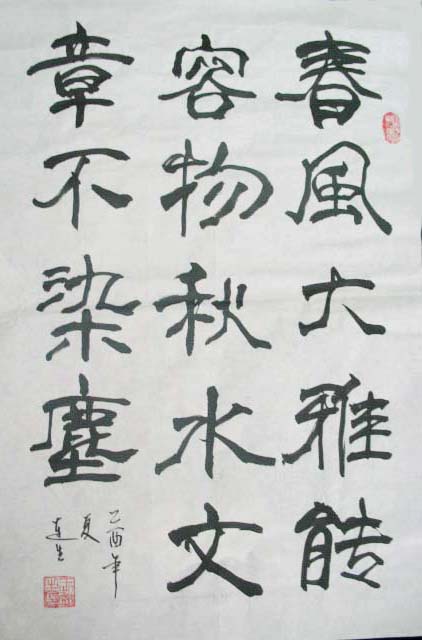 春風大雅能
容物秋水文
章不染塵
乙酉年
夏
連生